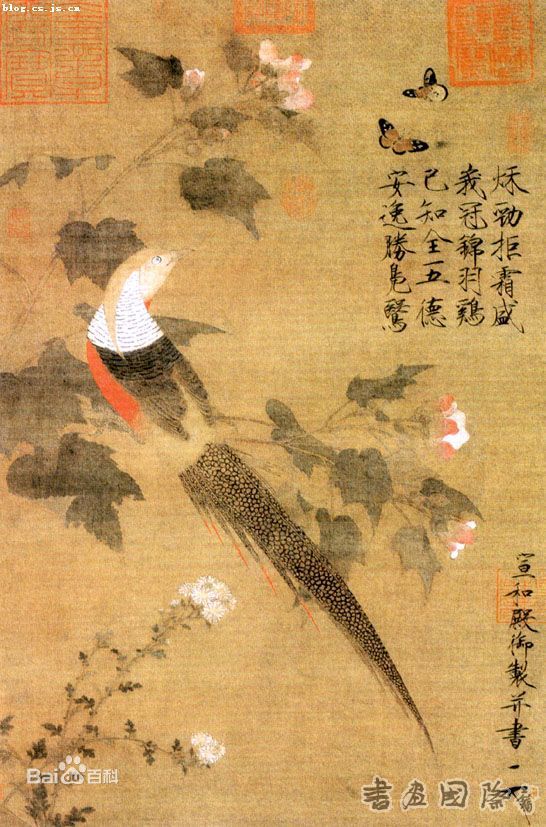 blog.cs.js.cn
秋勁拒霜盛
峩冠錦羽鷄
已知全五德
安逸勝鳧鷖
宣和殿御製并書
Bai du 百科
書画國際